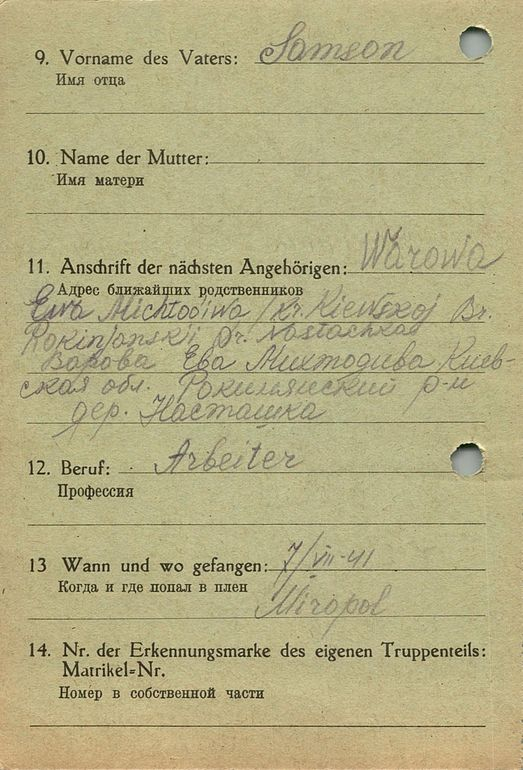 9. Vorname des Vaters: Samson
Имя отца
10. Name der Mutter:
Имя матери
11. Anschrift der nächsten Angehörigen: Warowa
Адрес ближайших родственников
Ewa Michtodiwa /Kr. Kiewskoj Br.
Rokinjanskij Dr. Nastachkad
Варова Ева Михтодива Киев-
ская обл. Ракильянский р-н
дер. Насташка
12. Beruf: Arbeiter
Профессия
13 Wann und wo gefangen: 7/VIII-41
Когда и где попал в плен
Miropol
14. Nr. der Erkennungsmarke des eigenen Truppenteils:
Matrikel=Nr.
Номер в собственной части